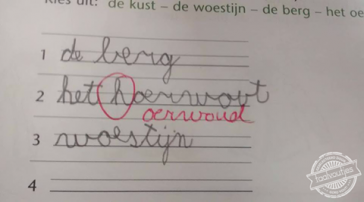 Kies uit: de kust – de woestijn – de berg – het oe
1 de berg
2 het hoerwout
oerwoud
3 woestijn
4
taalvoutjes